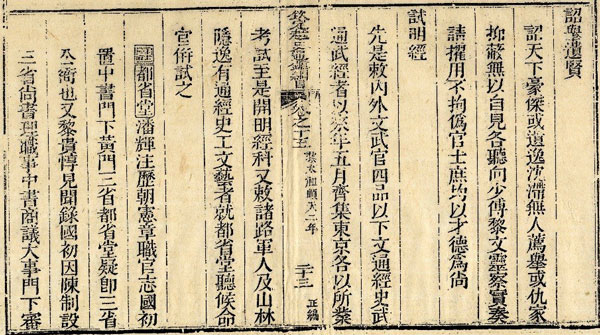 詔舉遺賢
詔天下豪傑或遺逸沈滯無人薦舉或仇家
抑蔽無以自見各聽向少傅黎文靈察實奏
請擢用不拘僞官士庶均以才德爲尚
試明經
先是敕內外文武官四品以下文通經史武
通武經者以茲年五月齊集東京各以所業
欽定越史通鑑綱目 卷之十五 黎太祖順天二年 二十三 正編
考試至是開明經科又敕諸路軍人及山林
隱逸有通經史工文藝者就都省堂聽候命
官併試之
註都省堂潘輝注歷朝憲章職官志國初
置中書門下黃門三省都省堂疑即三省
公衙也又黎貴惇見聞錄國初因陳制設
三省尚書理職事中書商議大事門下審